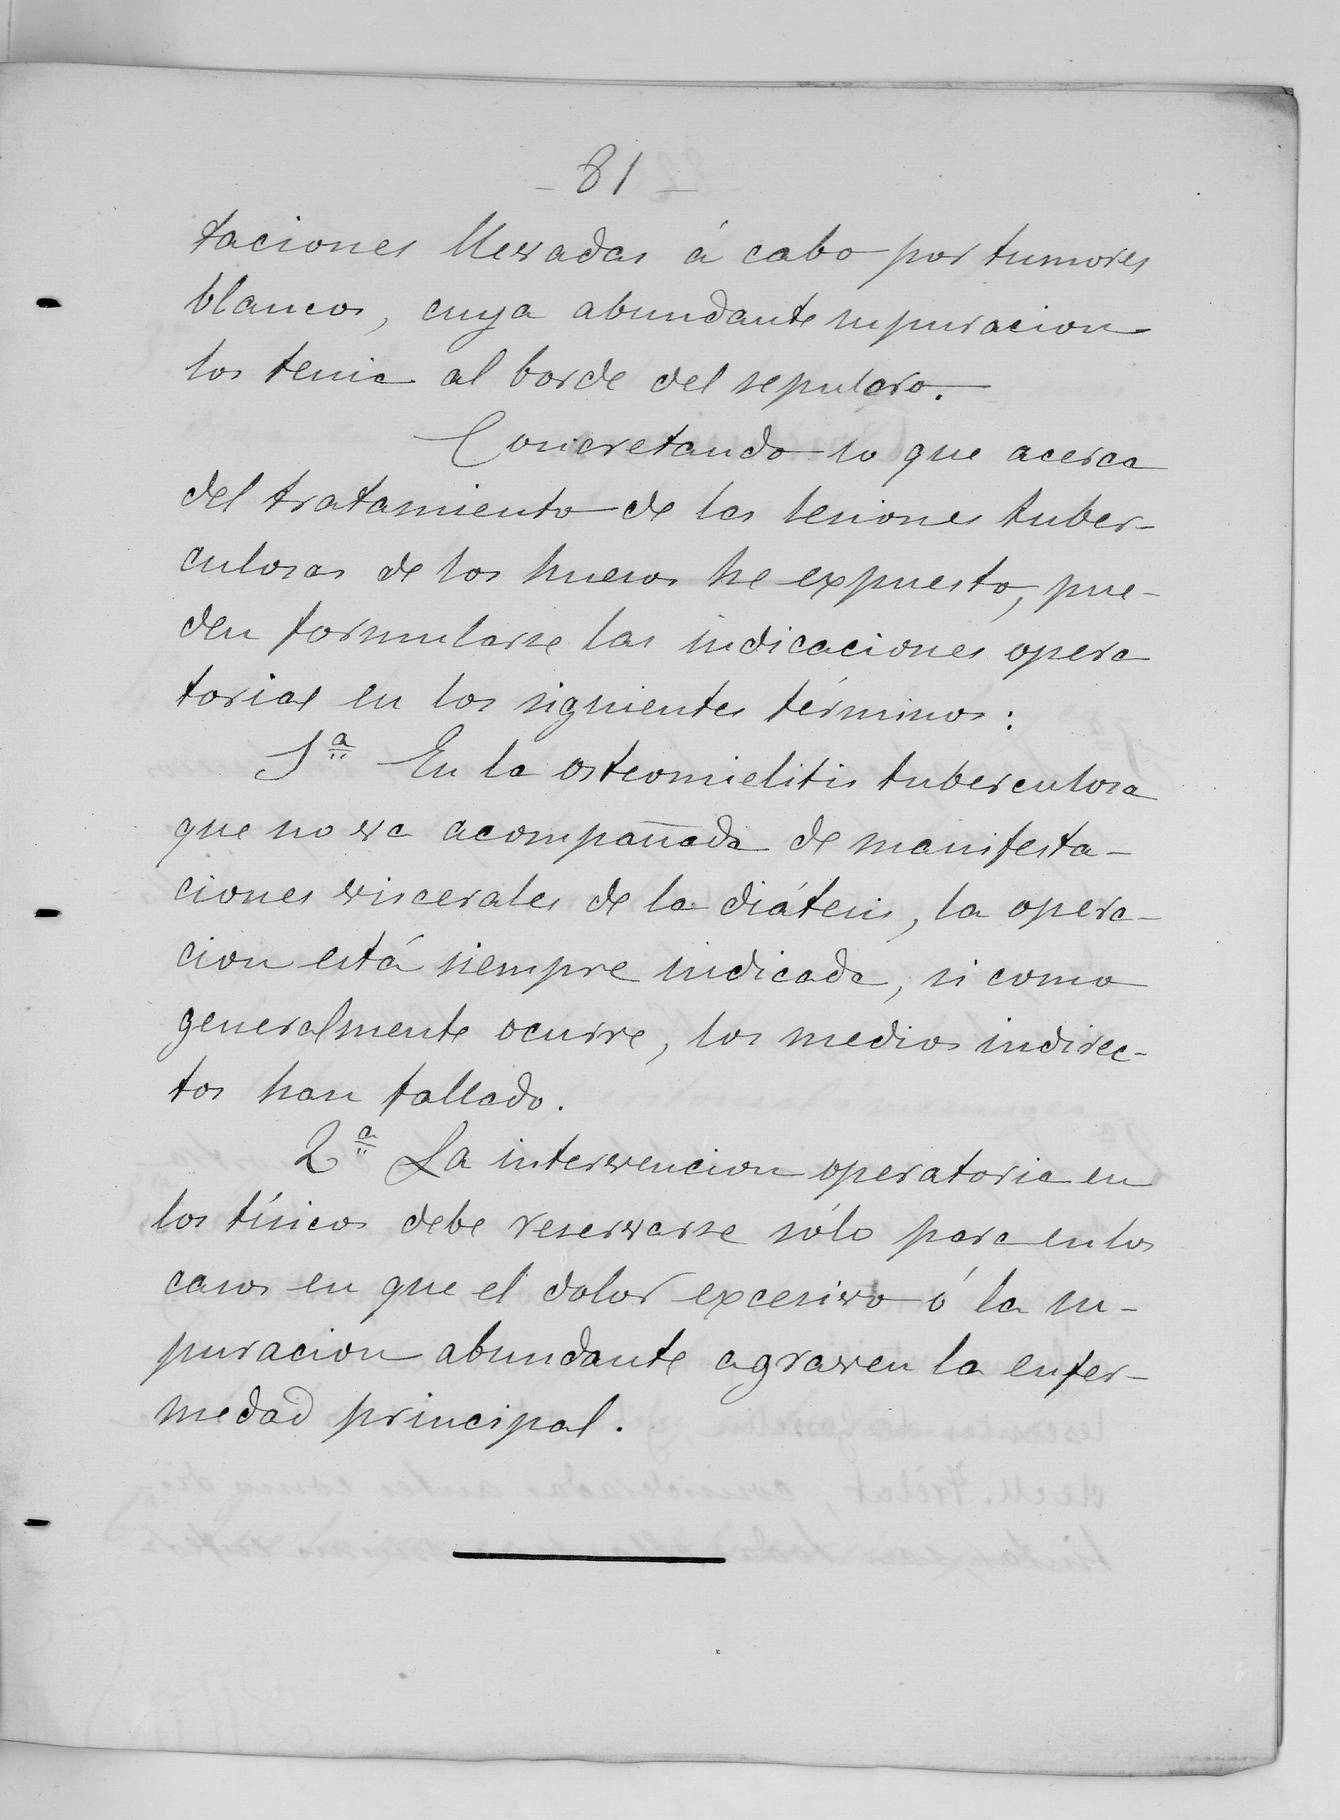 - 81 -
taciones llevadas á cabo por tumores
blancos, cuya abundante supuracion
los tenia al borde del sepulcro.
Concretando lo que acerca
del tratamiento de las lesiones tuber-
culosas de los huesos he expuesto, pue-
den formularse las indicaciones opera
torias en los siguientes términos:
1ª En la osteomielitis tuberculosa
que no va acompañada de manifesta-
ciones viscerales de la diátesis, la opera-
cion está siempre indicada, si como
generalmente ocurre, los medios indirec-
tos han fallado.
2ª La intervencion operatoria en
los tísicos debe reservarse sólo para en los
casos en que el dolor excesivo ó la su-
puracion abundante agraven la enfer-
medad principal.